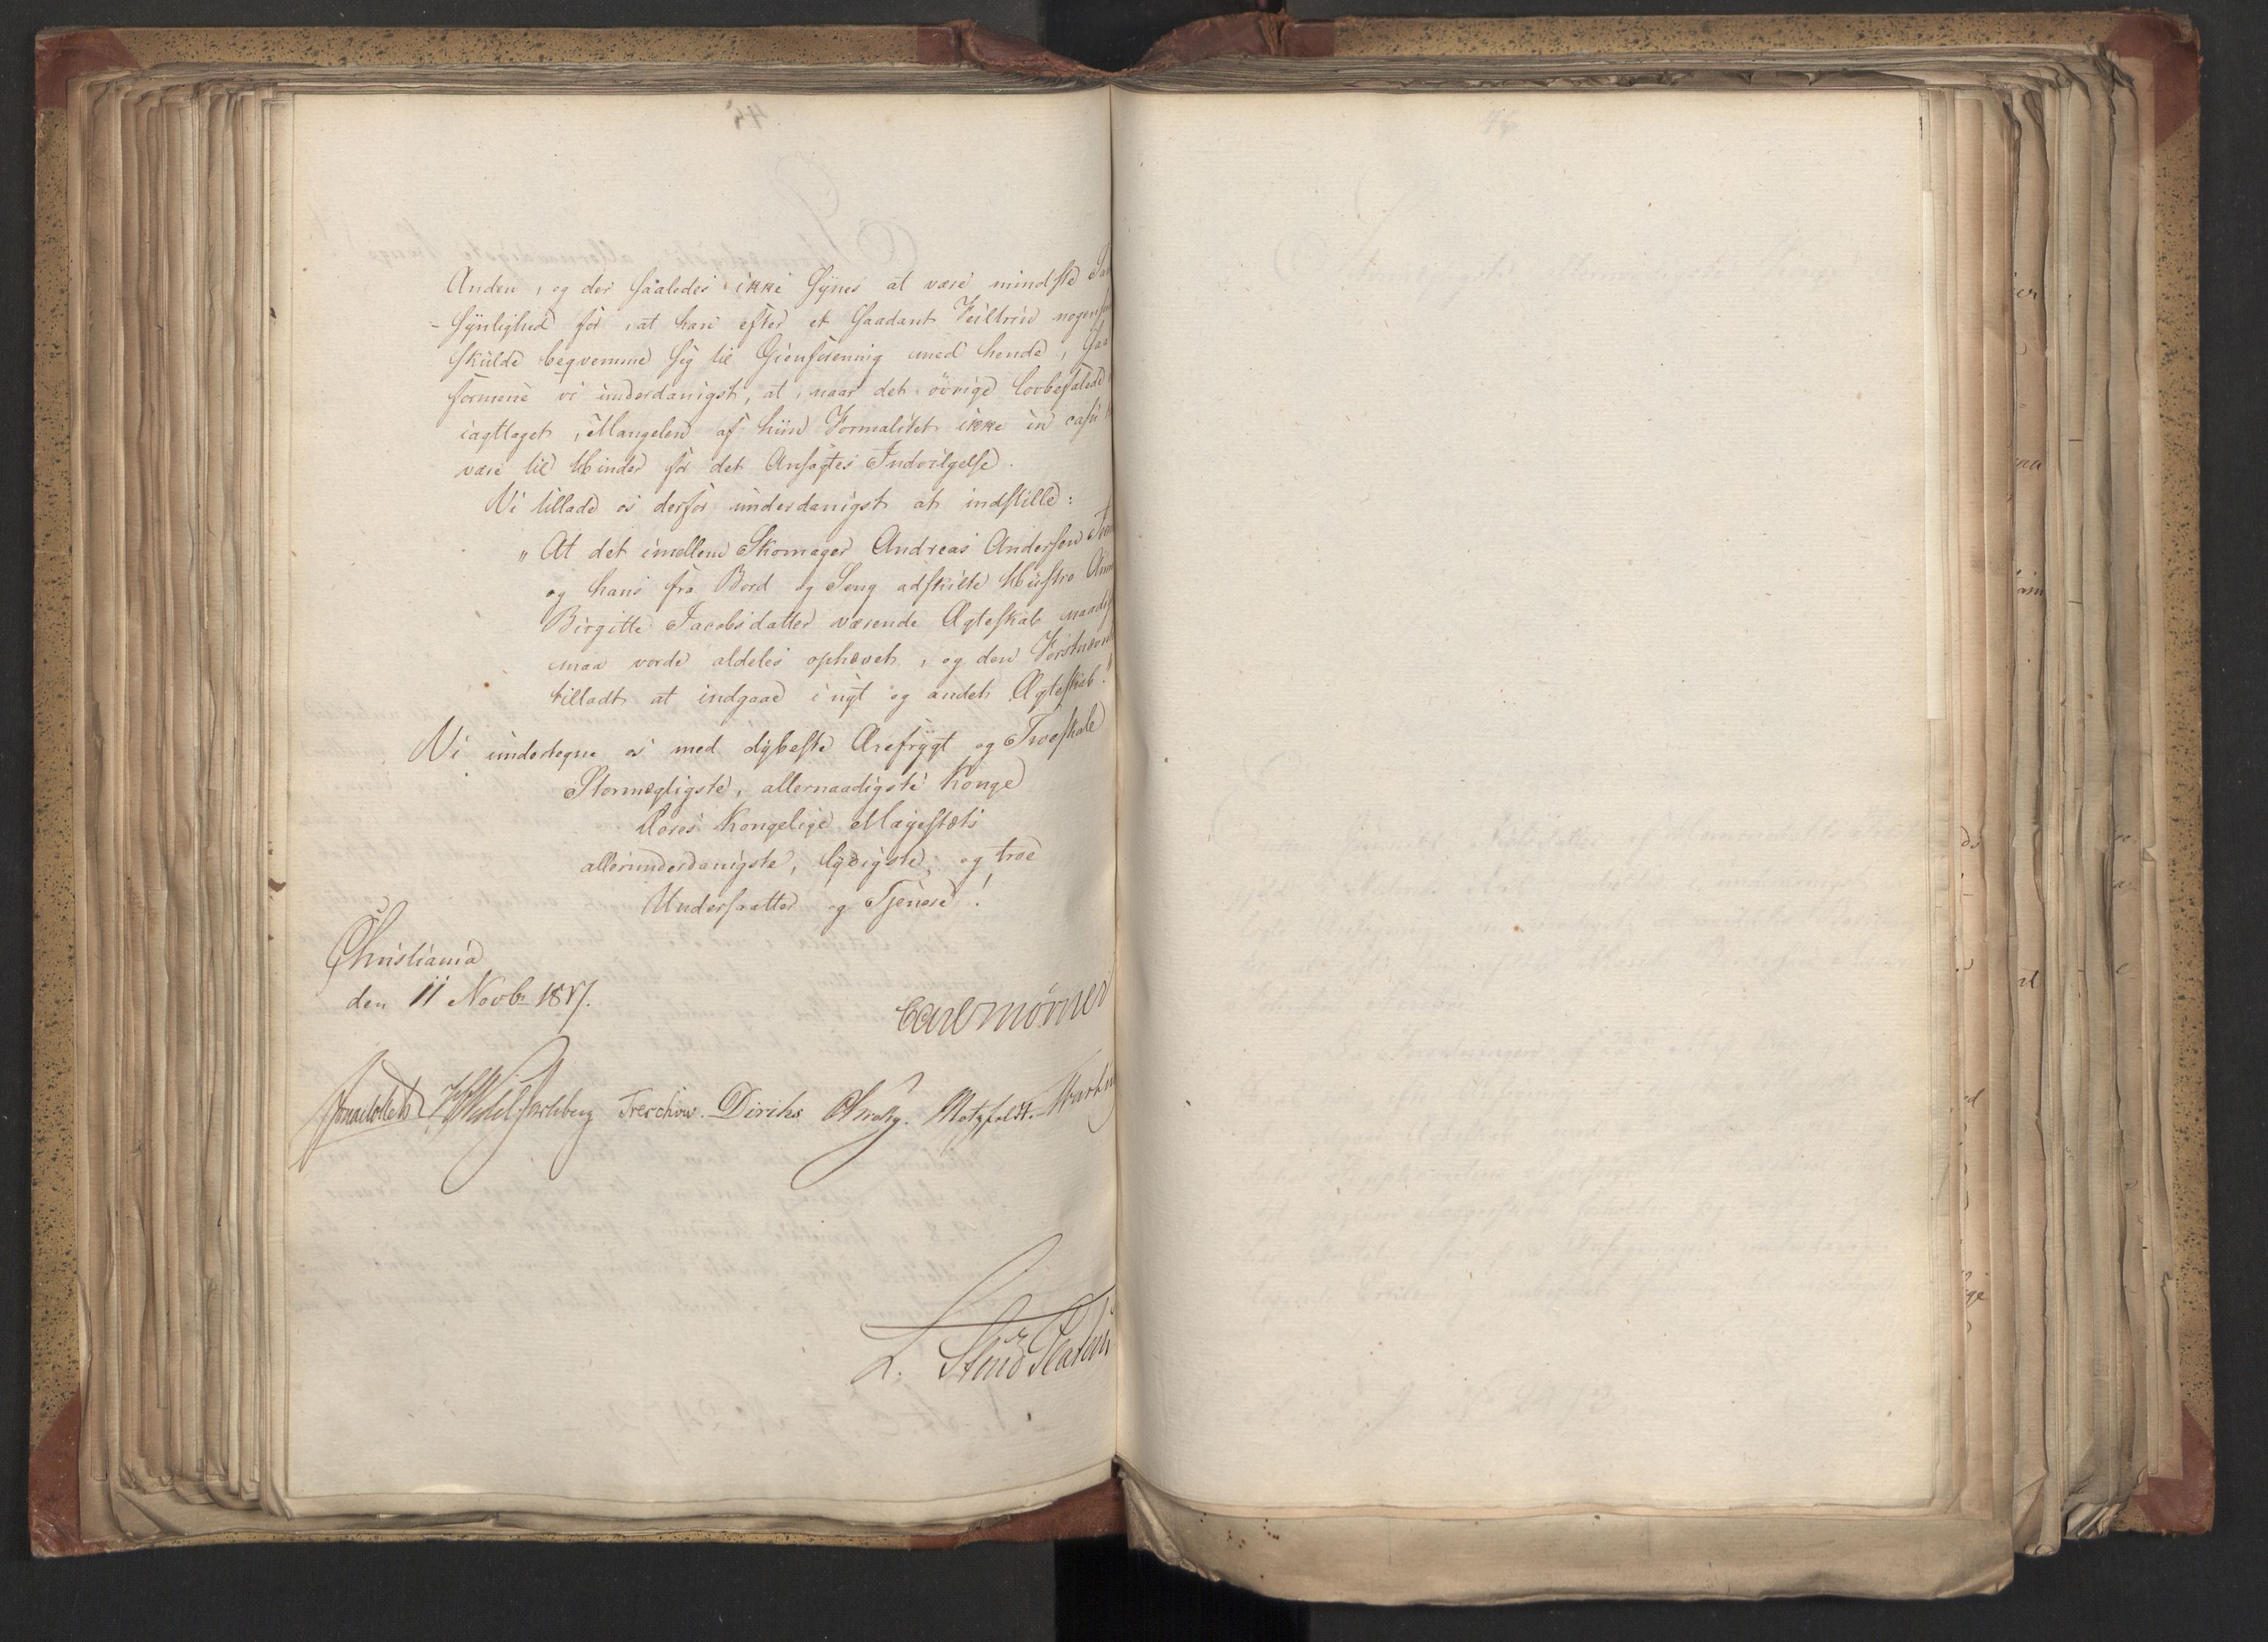 Anden, og der saaledes ikke synes at være mindste
synlighed for, at han efter et saadant Feiltrin nogen
skulde beqvemme sig til Gienforening med hende, saa
formene vi underdanigst, at, naar det øvrige lovbefalede
iagttaget, Mangelen af hiin Formalitet ikke in casu
være til Hinder for det Ansøgtes Indvilgelse.
Vi tillade os derfor underdanigst at indstille:
"At det imellem Skomager Andreas Andersen
og hans fra Bord og Seng adskilte Hustro
Birgitte Jacobsdatter værende Ægteskab naadigst
maa vorde aldeles ophævet, og den Førstnævnte
tilladt at indgaae i nyt og andet Ægteskab."
Vi undertegne os med dybeste Ærefrygt og Troeskab
Stormægtigste, allernaadigste Konge
Deres Kongelige Majestæts
allerunderdanigste, lydigste og troe
Undersaatter og Tjenere!
Christiania
den 11 Novbr 1817.
Carl Mörner
Wedel Jarlsberg Treschow. Diriks Motzfeldt.
L.